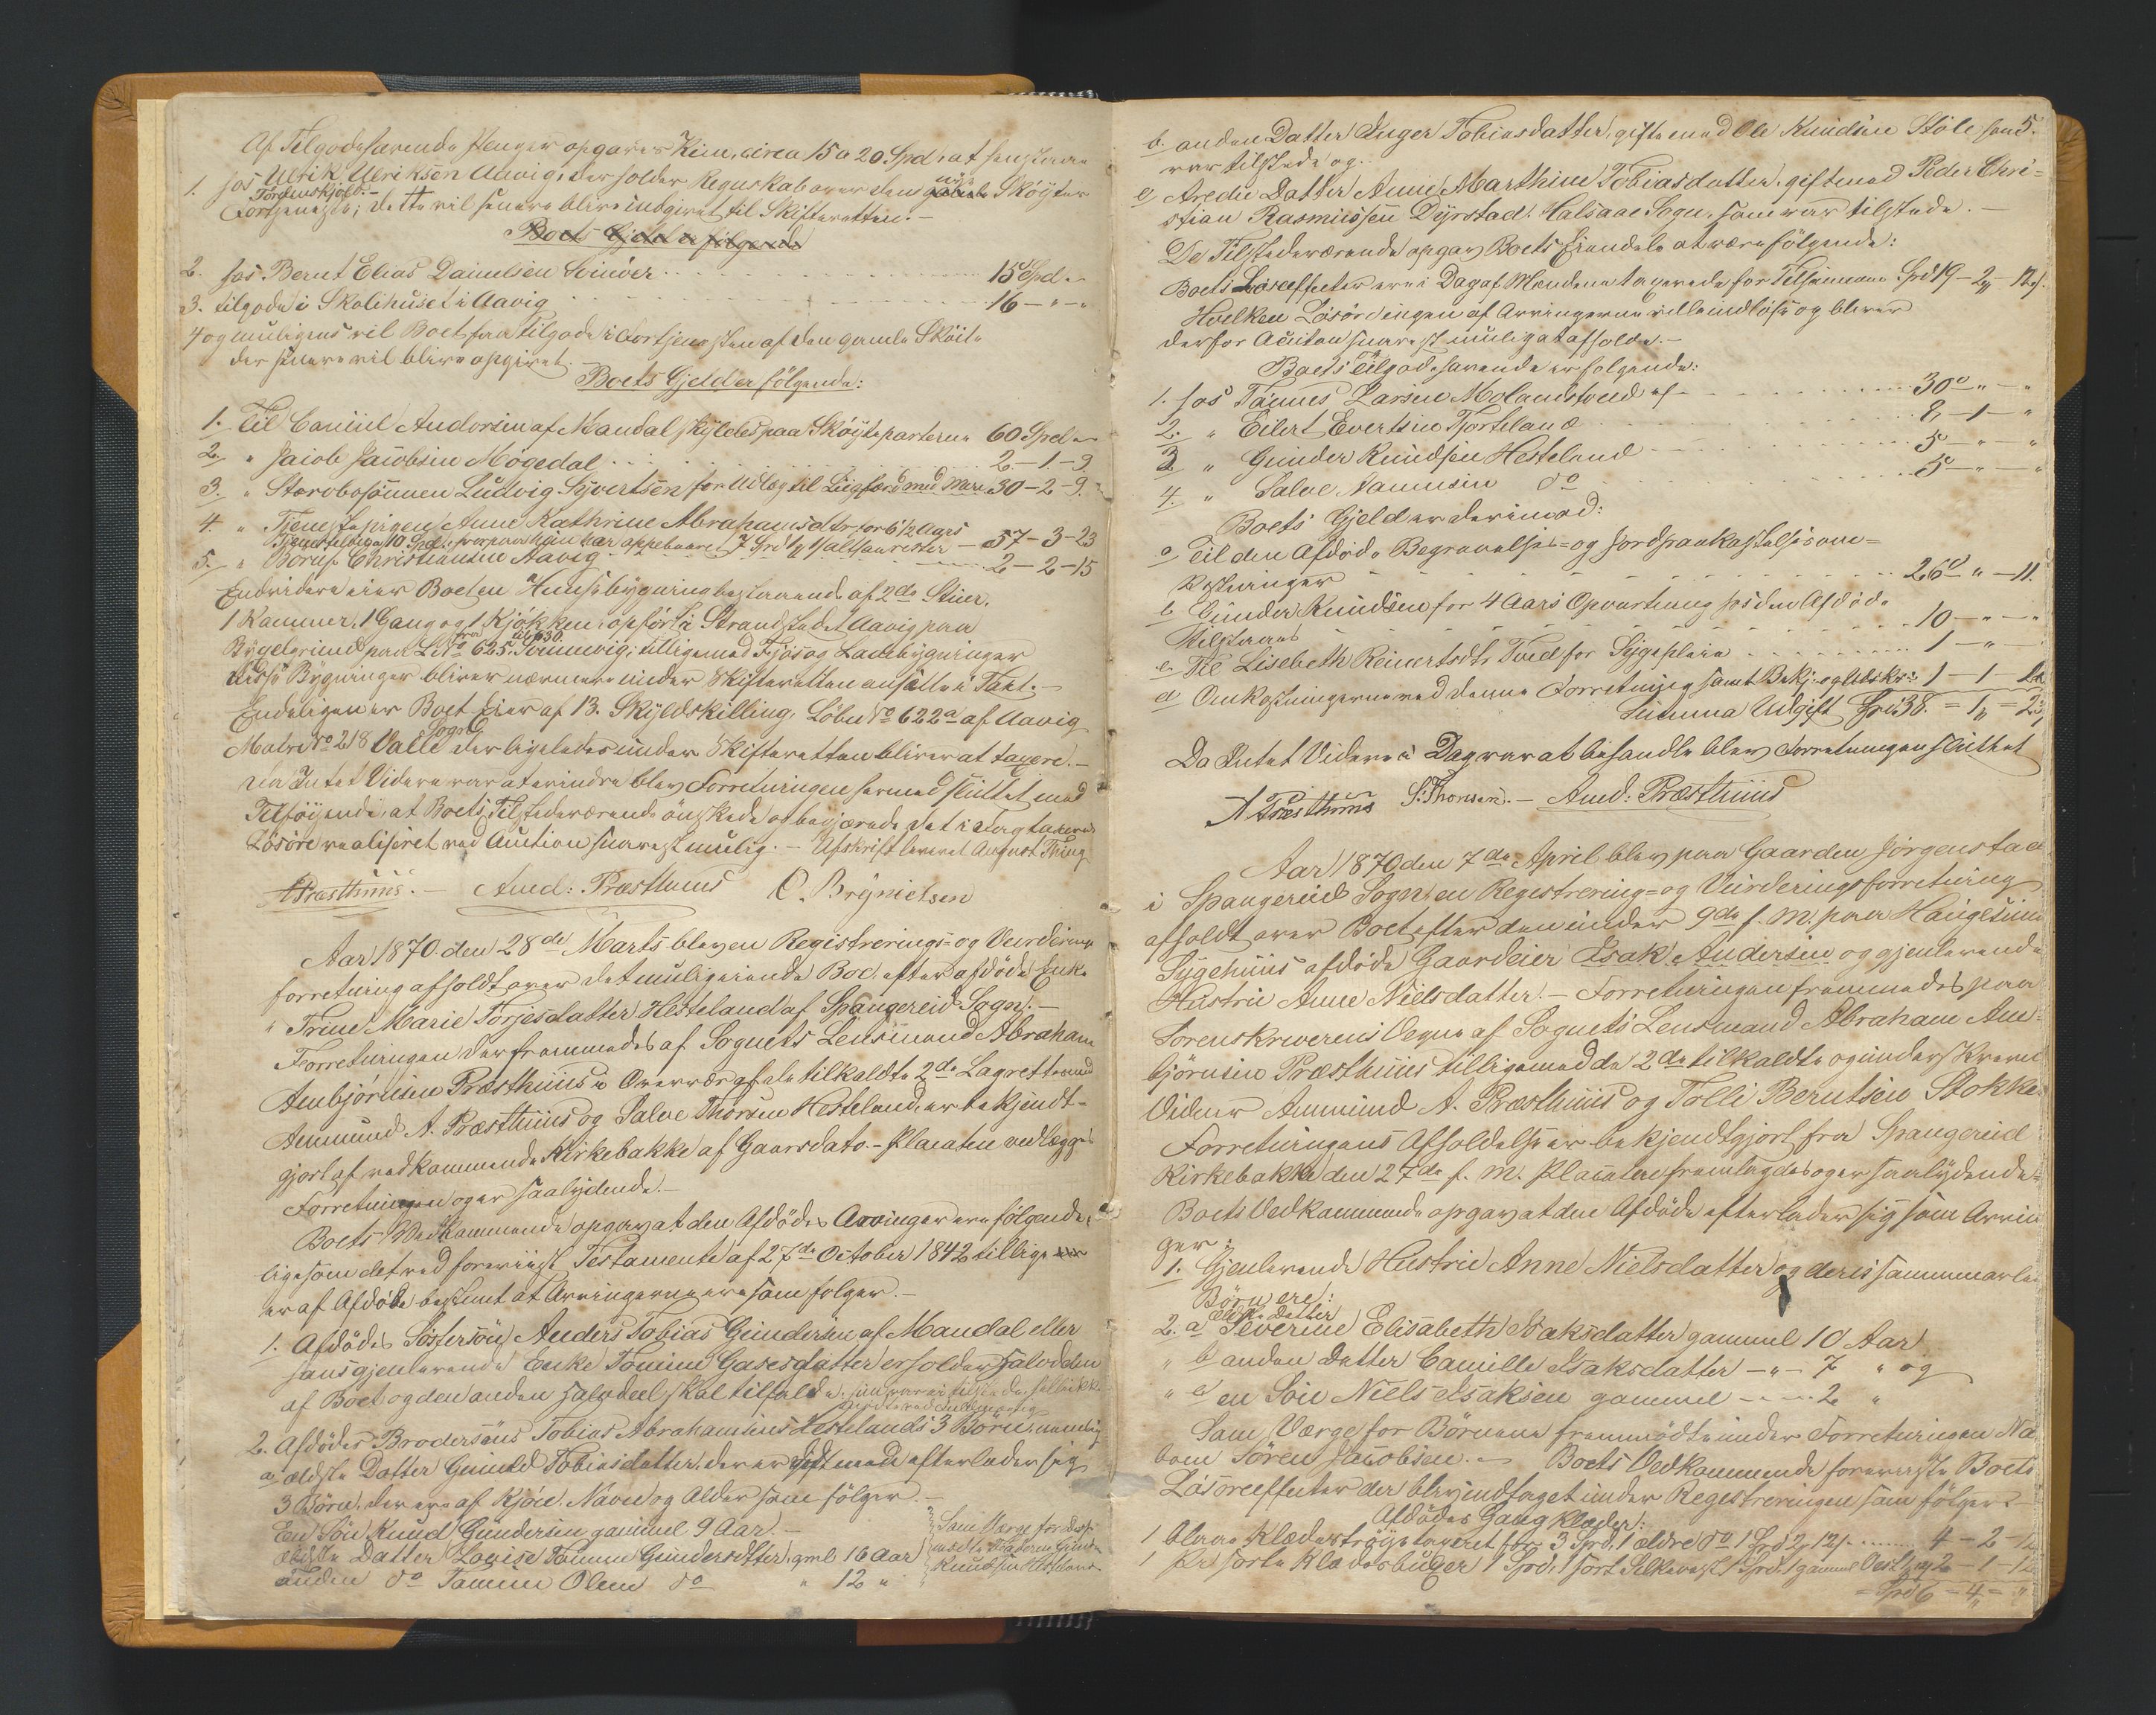 Af Tilgodehavende Penger opgaves Kun, circa 15 a 20 Spd, at henstaae
1. hos Ulrik Ulriksen Aavig, der holder Regnskab over den nye Skøyter
Tordenskjold.-
Fortjeneste; dette vil senere blive indgivet til Skifteretten.-
Boets Gjeld er følgende
2. hos Bernt Elias Danielsen Svinøer 15 Spd "
3. tilgode i Skolehuset i Aavig 16 - " - "
4 og muligens vil Boet faa tilgode i Fortjenesten af den gamle Skøite
der senere vil blive opgivet.
Boets Gjeld er følgende:
1. Til Daniel Andorsen af Mandal skyldes paa Skøyteparterne 60 Spd "
2. " Jacob Jacobsen Møgedal 2 - 1 - 9.
3. " Stervbosønnen Ludvig Syvertsen for Udlæg til Liigfærd med mere 30 - 2 - 9.
4. " Tjenestepigen Anne Kathrine Abrahamsdtr for 6 1/2 Aars
Tjeneste 10 Spd, hvorpaa hun har oppebaaret 7 Spd 57 - 3 - 23
5. " Børus Christiansen Aavig 2 - 2 - 15
Endvidere eier Boet en Huusbygning bestaaende af 2de Stuer,
1 Kammer, 1 Gang og 1 Kjøkken, opført i Strandstedet Aavig paa
Bygelgrund paa L No 625, Svinevig, tilligemed Fjøs og Ladebygninger
disse Bygninger bliver nærmere under Skifteretten ansatte i Taxt.-
Endeligen er Boet Eier af 13. Skyldskilling, Løbe No 622a af Aavig
Matr No 218 Valle Sogn der ligeledes under Skifteretten bliver at taxere.-
Da Intet Videre var at erindre blev Forretningen hermed sluttet med
Tilføiende, at Boets Tilstedeværende ønskede og begjærede det i Dag taxerede
Løsøre realiseret ved Auction snarest mulig.- Afskrift leveret August Thing
A Præsthuus.- Amd: Præsthuus O. Brynielsen
Aar 1870 den 28de Marts blev en Registrerings- og Vurderings
forretning afholdt over det muligeiende Bod efter afdøde Enke
" Trine Marie Torjesdatter Hesteland af Spangereid Sogn.-
Forretningen der fremmedes af Sognets Lensmand Abraham
Ambjørnsen Præsthuus i Overvær af de tilkaldte 2de Lagrettemænd
Ammund A. Præsthuus og Salve Thorsen Hesteland, er bekjendt-
gjort af vedkommende Kirkebakke af Gaarsdato.- Placaten vedlægges
Forretningen og er saalydende.-
Boets Vedkommende opgav at den Afdødes Arvinger ere følgende,
ligesom det ved foreviist Testamente af 27de October 1842 tillige
er af Afdøde bestemt at Arvingerne ere som følger.-
1. Afdødes Søstersøn Anders Tobias Gundersen af Mandal eller
hans gjenlevende Enke Tomine Gasesdatter erholder Halvdelen
af Boet og den anden halvdeel skal tilfalde
2. Afdødes Brodersøns Tobias Abrahamsens Hestelands 3 Børn, nemlig
a ældste Datter Gunild Tobiasdatter, der er død men efterlader sig
3 Børn, der ere af Kjøn, Navn og Alder som følger.-
En Søn Knud Gundersen gammel 9 Aar.-
ældste Datter Lovise Tomine Gundersdtter, gml 16 Aar
anden do Tomine Olene do " 12 "
Som Værge for disse
mødte Faderen Gunder
Knudsen Hesteland
5.
b. anden Datter Inger Tobiasdatter, gift med Ole Knudsen Støle som
var tilstede og.
c, tredie Datter Anne Marthine Tobiasdatter, gift med Peder Chri-
stian Rasmussen Dyrstad, Halsaae Sogn, som var tilstede.-
De Tilstedeværende opgav Boets Eiendele at være følgende:
Boets Løsøeffecter ere i Dag af Mændene taxerede for Tilsammen Spd 19 - 2 " 12 s.
Hvilken Løsøre ingen af Arvingerne ville indløse og bliver
derfor Auction snarest muligt at afholde.-
Boets tilgodehavende er følgende:
1. hos Tønnes Larsen Molandstved af 30 " - "
2. " Eilert Evertsen Fjorteland 2 - 1 - "
3. " Gunder Knudsen Hesteland 5 - " - "
4. " Salve Nannesen do 5 - " - "
Boets Gjeld er derimod:
a Til den Afdødes Begravelses- og Jordpaakastelsesom-
kostninger 26 " - 11.
b Gunder Knudsen for 4 Aars Opvartning hos den Afdøde
tilstaaes 10 - " - "
c. Til Lisebeth Reinertsdtr Tved for Sygepleie 1 - " -
d Omkostningerne ved denne Forretning samt Bekj: og Udskr: 1 - 1
Summa Udgift Spd 38. = 1 " = 23
Da Intet Videre i Dag var at behandle blev Forretningen sluttet
A Præsthuus S. Thorsen.- Amd: Præsthuus
Aar 1870 den 7de April blev paa Gaarden Jørgenstad
i Spangereid Sogn, en Registrering- og Vurderingsforretning
afholdt over Boet efter den under 9de f. M. paa Haugesunds
Sygehuus afdøde Gaardeier Isak Andersen og gjenlevende
Hustrue Anne Nielsdatter.- Forretningen fremmedes paa
Sorenskriverens Vegne af Sognets Lensmand Abraham Am-
bjørnsen Præsthuus tilligemed de 2de tilkaldte og underskrevne
Vidner Ammund A. Præsthuus og Tolli Berntsen Stokke.
Forretningens Afholdelse er bekjendtgjort fra Spangereid
Kirkebakke den 27de f. M. Placaten fremlagdes og er saalydende.
Boets Vedkommende opgav at den Afdøde efterlader sig som Arvin
ger:
1. Gjenlevende Hustrue Anne Nielsdatter og deres sammenavlede
Børn ere:
ældste Datter
2. a Severine Elisabeth Isaksdatter gammel 10 Aar
" b anden Datter Camille Isaksdatter - " - 7 " og
" c en Søn Niels Isaksen gammel 2 "
Som Værge for Børnene fremmødte under Forretningen Na
boen Søren Jacobsen.- Boets Vedkommende foreviiste Boets
Løsøreeffecter der blev indtaget under Registreringen som følger:
Afdødes Gangklæder:
1 blaae Klædestrøye taxeret for 3 Spd, 1 ældre do 1 Spd 2 " 12 s 4 - 2 - 12
1 Par sorte Klædesbuxer 1 Spd, 1 sort Silkevest 1 Spd, 1 gammel Vest 2 - 1 - 12
= Spd 6 = 4 = "